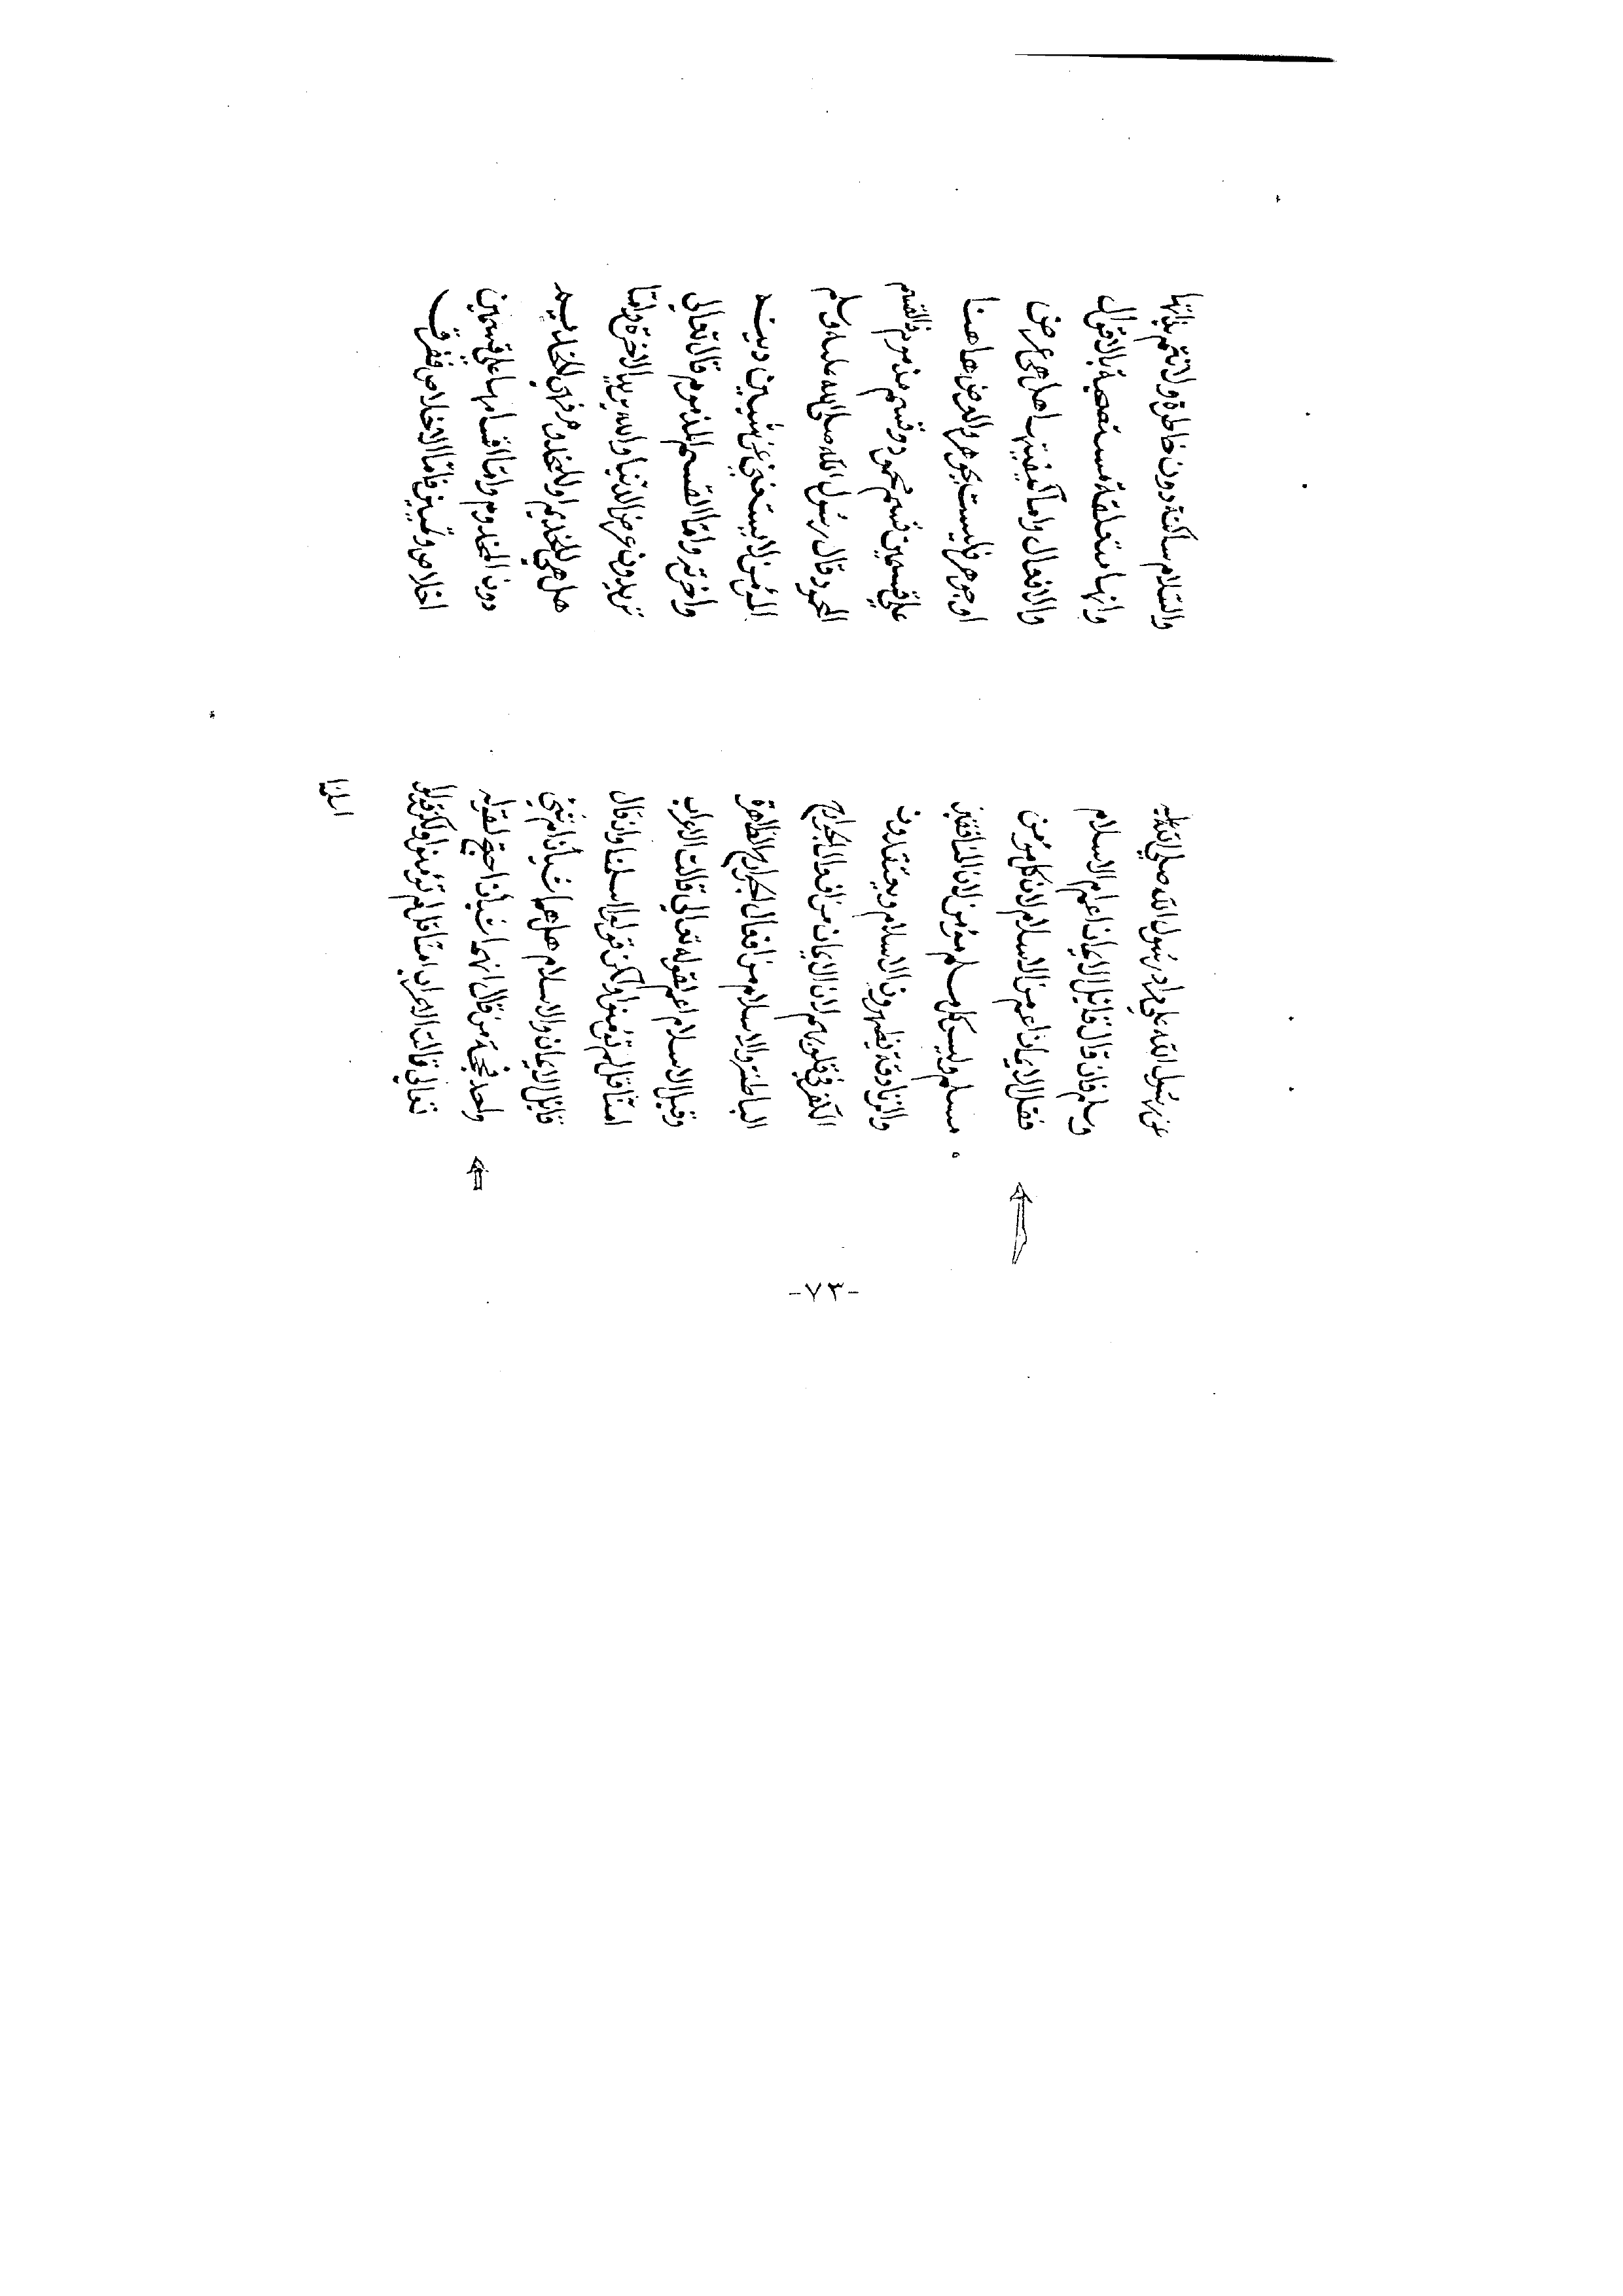 عن رسول الله علي مراد رسول الله صلي الله عليه
وسلم فان قال قائل الايمان اعم ام الاسلام
فقل الايمان اعم من الاسلام لان كل مؤمن
مسلم وليس كل مسلم مؤمن لان المنافقين
والزنادقة يظهرون الاسلام ويعتقدون
الكفر في قلوبهم لان الايمان من افعال الجوارح
الباطنة والاسلام من افعال الجوارح الظاهرة
وقيل الاسلام اعم لقوله تعالي قالت الاعراب
امنا قل لم تؤمنوا ولكن قولوا اسلمنا وان قال
قائل الايمان والاسلام هل هما شيأن ام شيئ
واحد فحجة من قال انهما شيأن احتج بقوله
تعالي قالت الاعراب امنا قل لم تؤمنوا ولكن قولوا
اسلمنا
والسلام ساكنة دون خاطرة ولا تتم بذاتها
وانها متعلقة مستصحبة بالاقوال
والافعال واما كيفيتها هل هي عرض
او جوهر فليست بجوهر والعرض هاهنا
علي قسمين قسم محمود وقسم مذموم فالقسم
المحمود قال رسول الله صلى الله عليه وسلم
المؤمن لا يستغني عن شيأين دينه
واخرته واما القسم المذموم قال تعالى
تريدون عرض الدنيا والله يريد الاخرة واما
هل هي للخديم او للمخدوم فهي للخديم
دون المخدوم واما اقسامها علي قسمين
اخلاص وتمييز فاما الاخلاص ففرق
-٧٣-